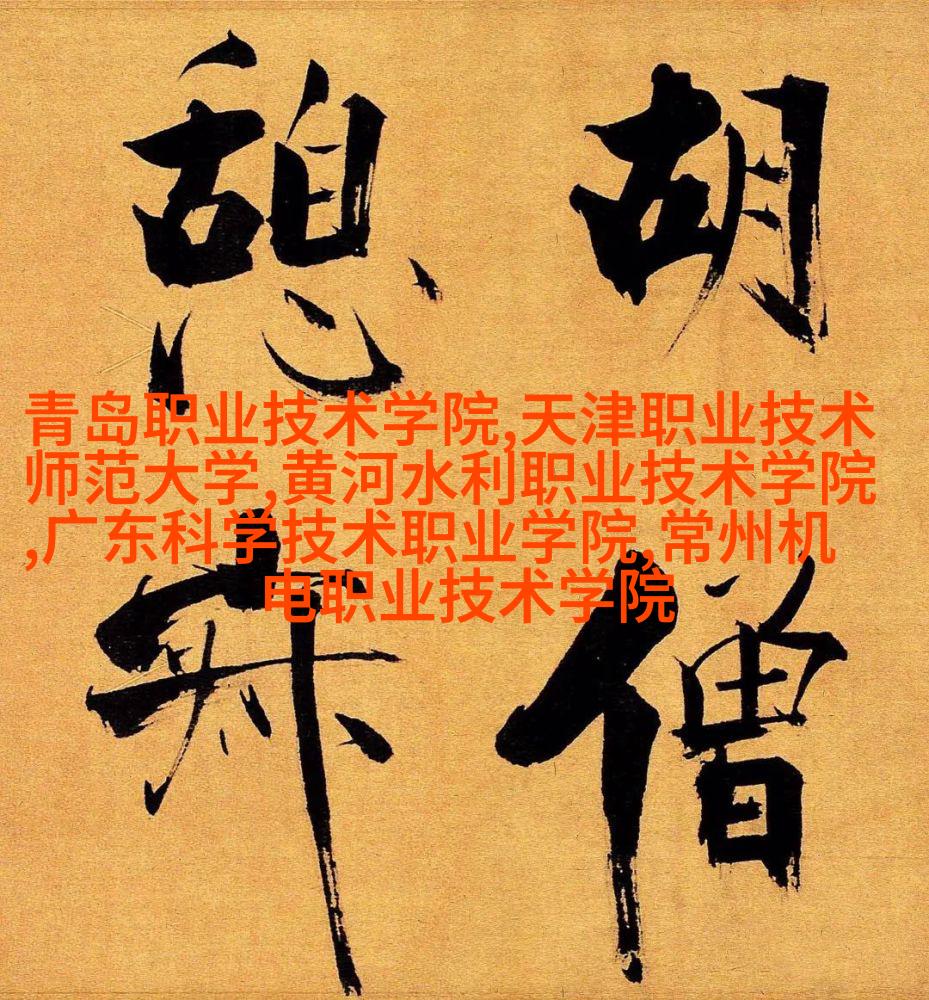 胡僧
憩寂
青岛职业技术学院,天津职业技术
师范大学,黄河水利职业技术学院
,广东科学技术职业学院,常州机
电职业技术学院